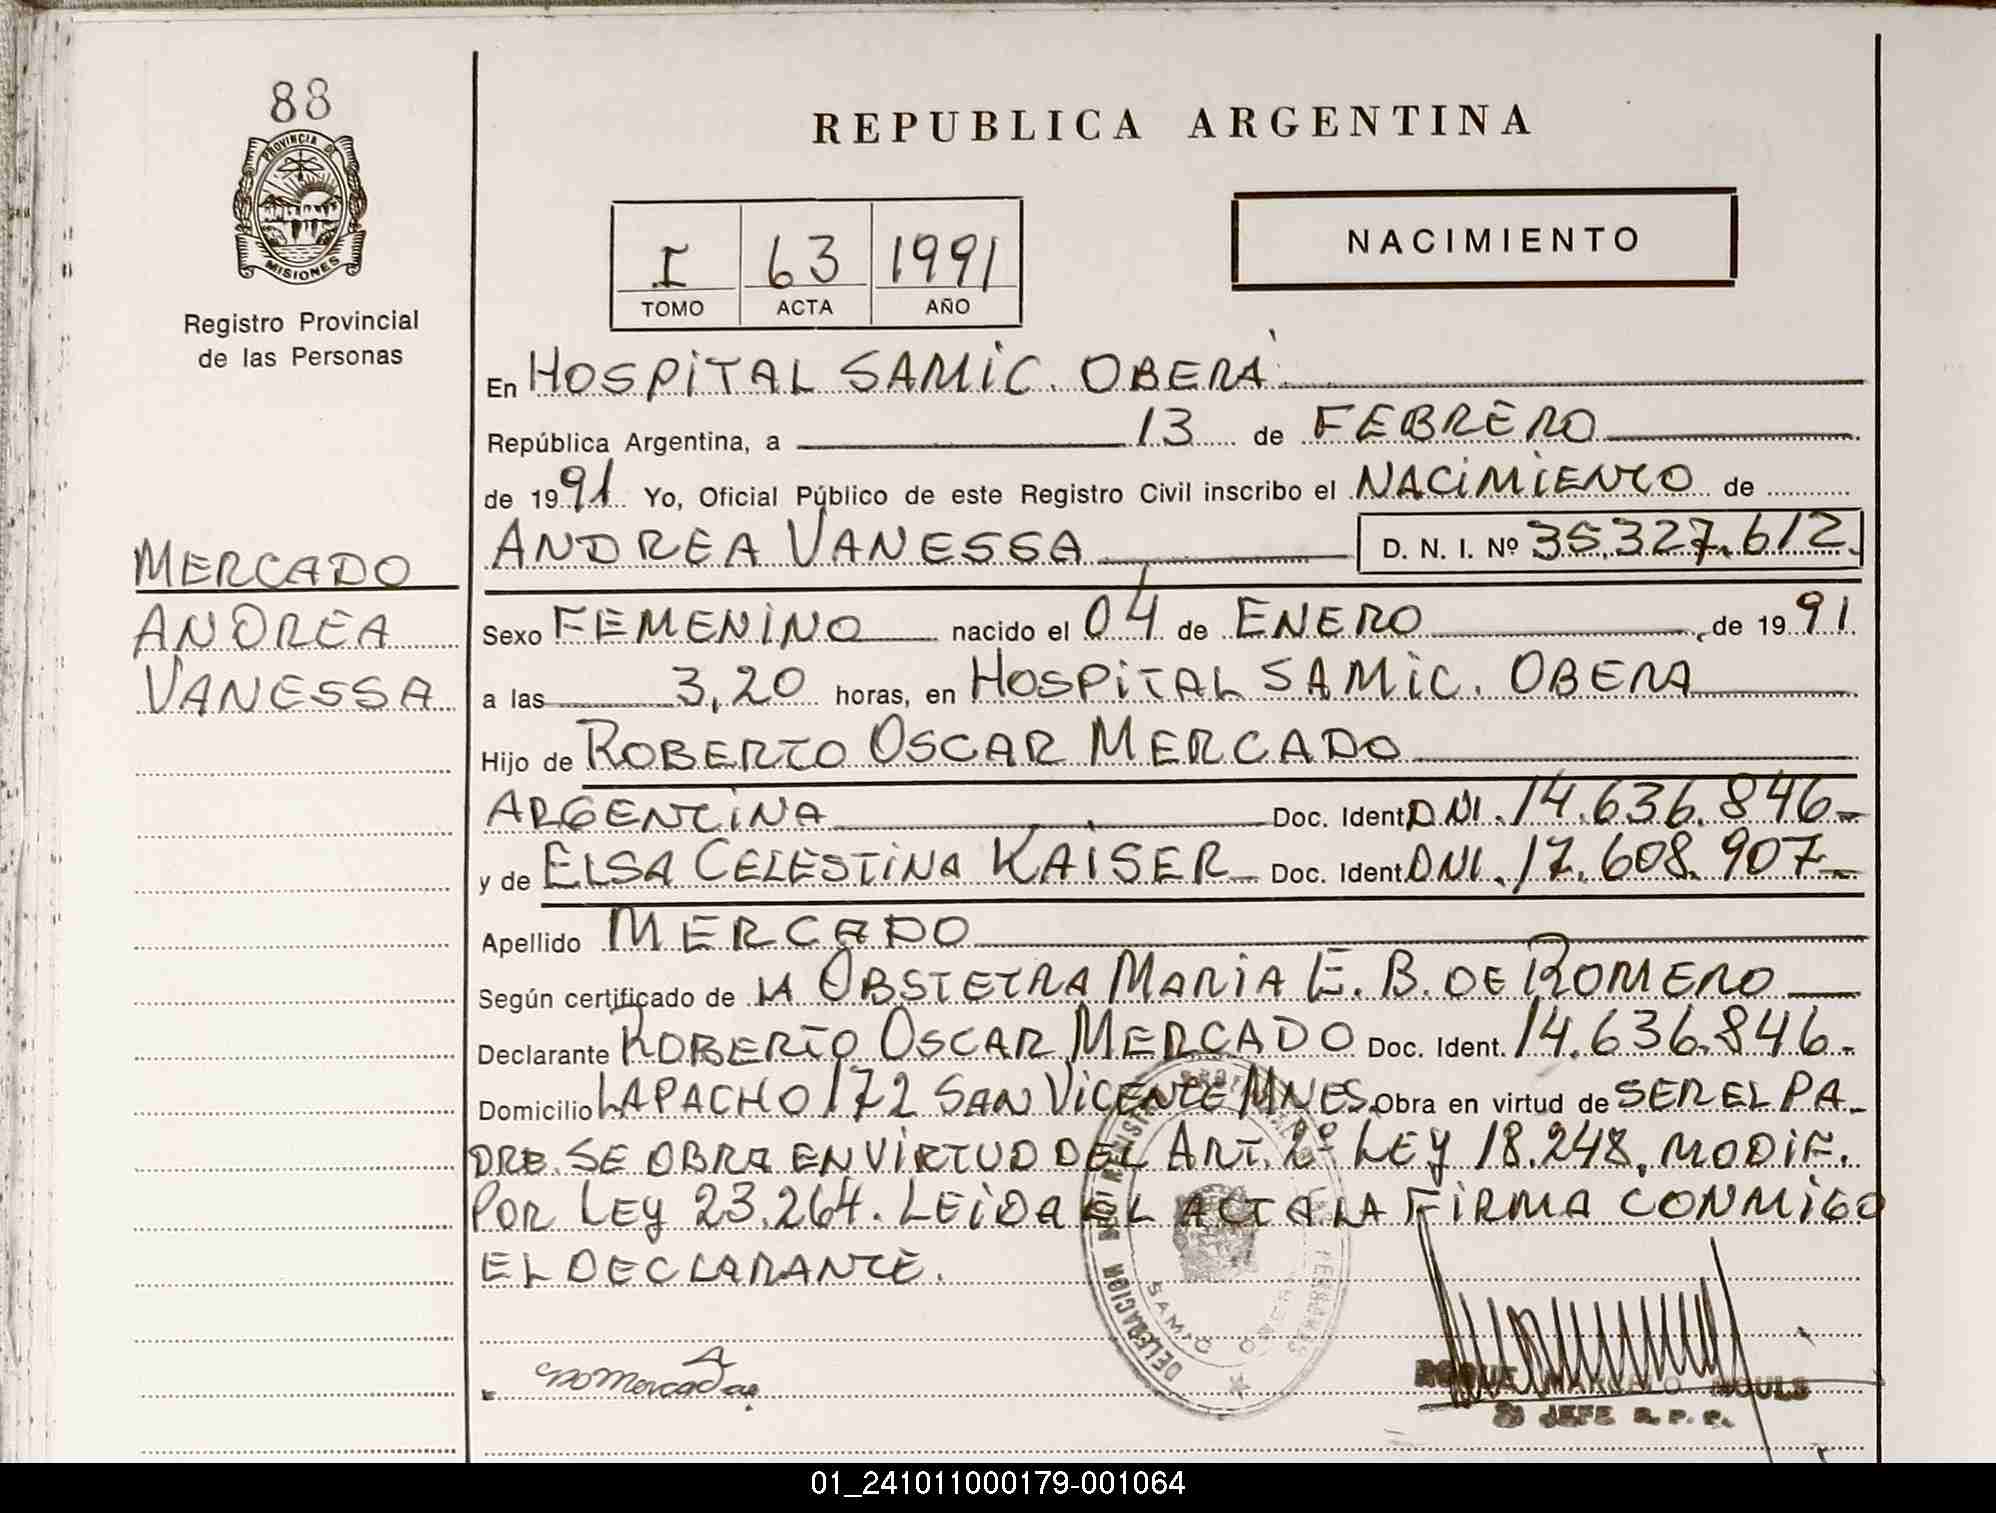 88
PROVINCIA DE
MISIONES
Registro Provincial
de las Personas
REPUBLICA ARGENTINA
I 63 1991
TOMO ACTA AÑO
NACIMIENTO
En HOSPITAL SAMIC. OBERÁ
República Argentina, a 13 de FEBRERO
de 1991 Yo, Oficial Público de este Registro Civil inscribo el NACIMIENTO de
ANDREA VANESSA D. N. I. Nº 35.327.612.
MERCADO
ANDREA
VANESSA
Sexo FEMENINO nacido el 04 de ENERO de 1991
a las 3,20 horas, en HOSPITAL SAMIC. OBERA
Hijo de ROBERTO OSCAR MERCADO
ARGENTINA Doc. Ident. DNI. 14.636.846-
y de ELSA CELESTINA KAISER Doc. Ident. DNI. 17.608.907-
Apellido MERCADO
Según certificado de LA OBSTETRA MARIA E. B. DE ROMERO
Declarante ROBERTO OSCAR MERCADO Doc. Ident. 14.636.846-
Domicilio LAPACHO 172 SAN VICENTE MNES. Obra en virtud de SER EL PA-
DRE. SE OBRA EN VIRTUD DEL ART. 2º LEY 18.248. MODIF.
POR LEY 23.264. LEIDA EL ACTA LA FIRMA CONMIGO
EL DECLARANTE.
DELEGACION
SAMIC OBERA
JEFE R. P. P.
01_241011000179-001064